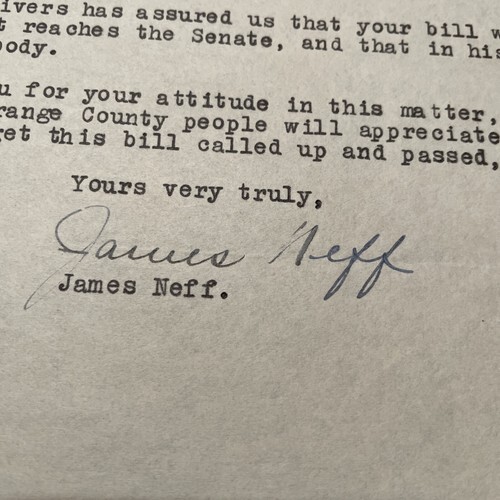 ivers has assured us that your bill w
t reaches the Senate, and that in his
body.
u for your attitude in this matter,
range County people will appreciate
get this bill called up and passed,
Yours very truly,
James Neff
James Neff.